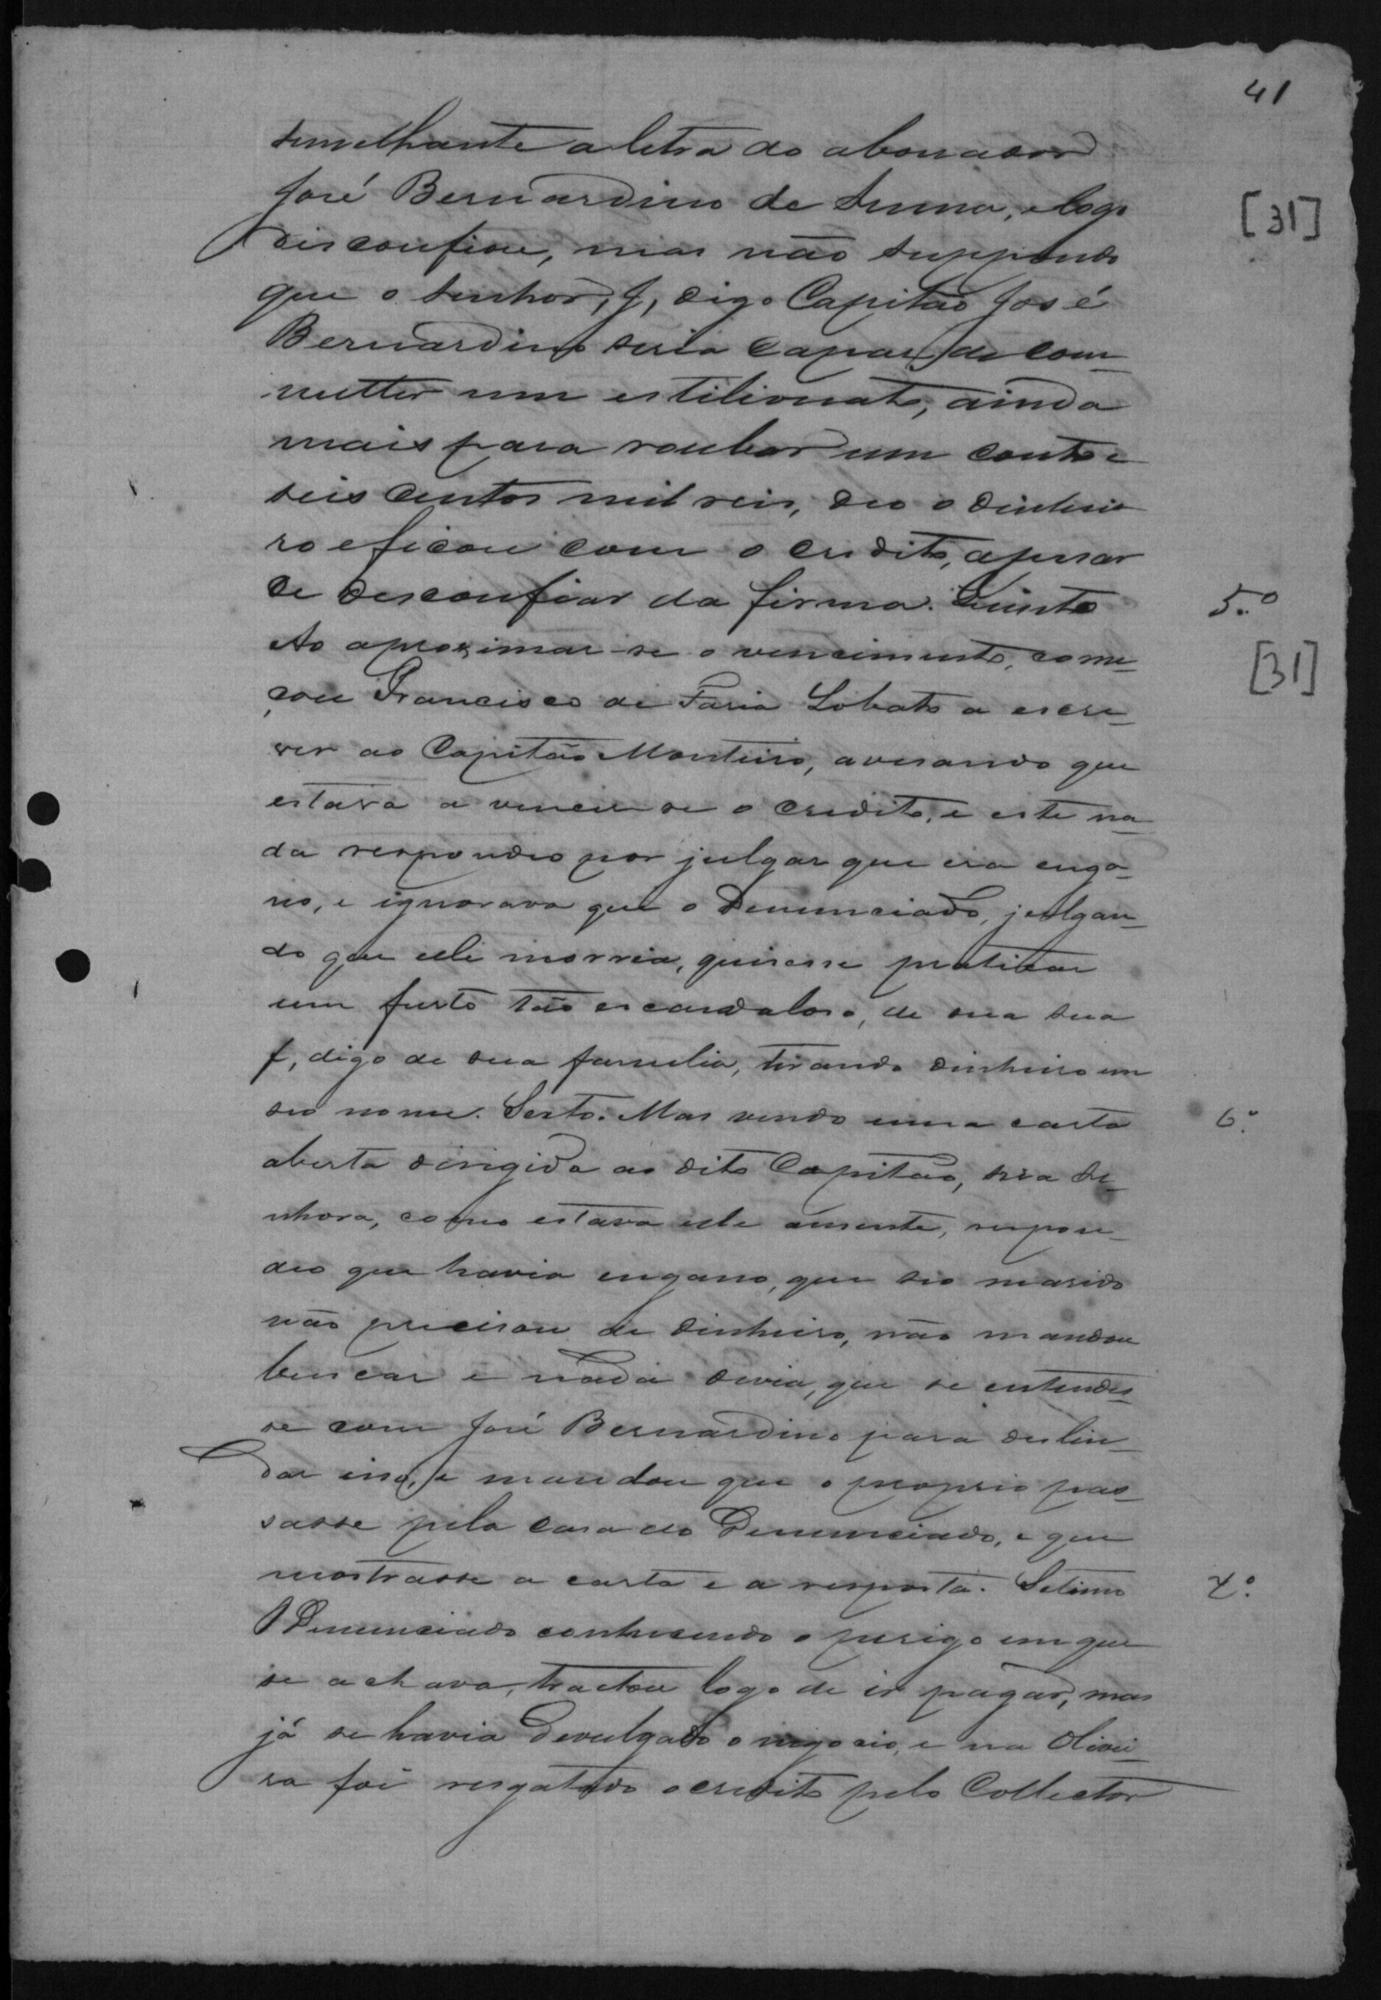 41
semelhante a letra do abonador
José Bernardino de Senna, e logo
[31]
disconfiou, mas não suppondo
que o senhor, J, digo Capitão José
Bernardino seria capaz de com-
metter um estilionato, ainda
mais para roubar um conto e
seis centos mil reis, deo o dinhei-
ro e ficou com o credito, apesar
de desconfiar da firma. Quinto
5.º
Ao aproximar-se o vencimento, come-
[31]
çou Francisco de Faria Lobato a escre-
ver ao Capitão Monteiro, avisando que
estava a vencer-se o credito, e este na-
da respondeo por julgar que era enga-
no, e ignorava que o Denunciado, julgan-
do que elle morria, quisesse praticar
um furto tão escandaloso, de sua sua
f, digo de sua familia, tirando dinheiro em
seo nome. Sexto. Mas vindo uma carta
6.º
aberta dirigida ao dito Capitão, sua Se-
nhora, como estava elle ausente, respon-
deo que havia engano, que seo marido
não precisou de dinheiro, não mandou
buscar e nada devia, que se entendes-
se com José Bernardino para deslin-
dar isso, e mandou que o proprio pas-
sasse pela casa do Denunciado, e que
mostrasse a carta e a resposta. Setimo
7.º
O Denunciado conhecendo o perigo em que
se achava, tractou logo de ir pagar, mas
já se havia devulgado o negocio, e na Olivei-
ra foi resgatado o credito pelo Collector